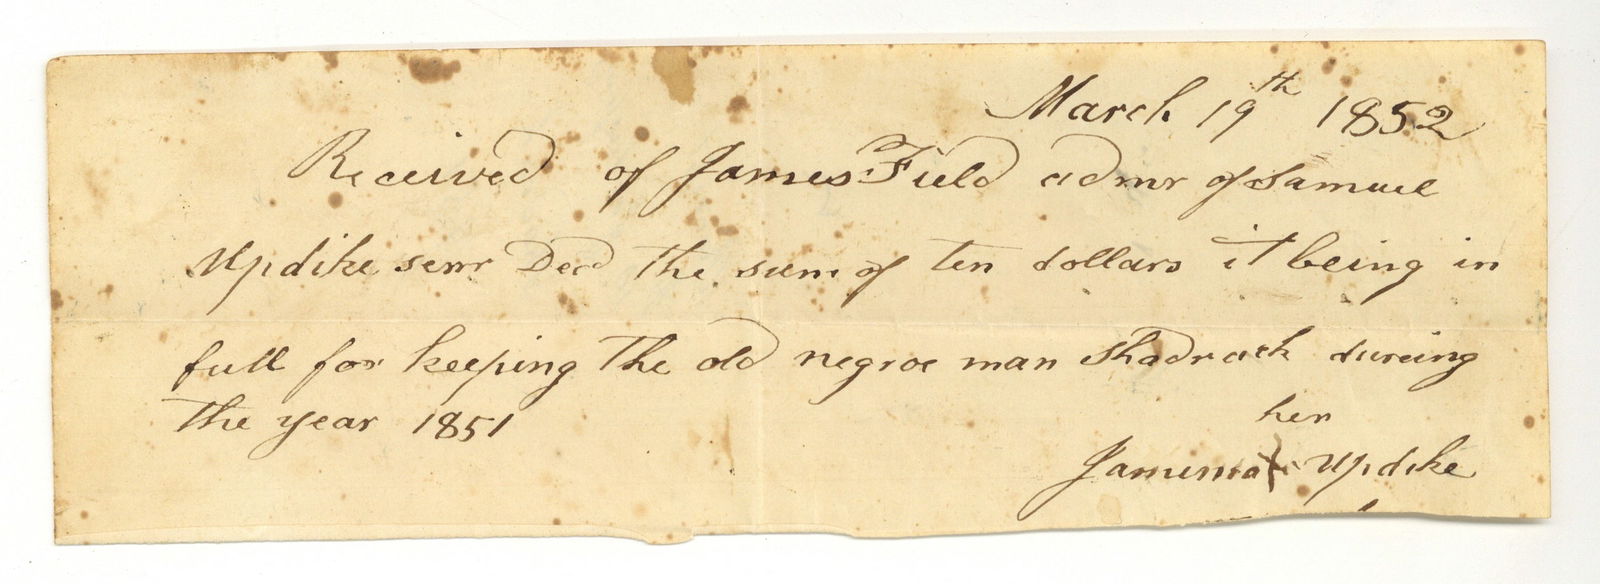 March 19th 1852
Received of James Field admr of Samuel
Updike senr Decd the sum of ten dollars it being in
full for keeping the old negroe man Shadrack dureing
the year 1851
her
Jamima X Updike